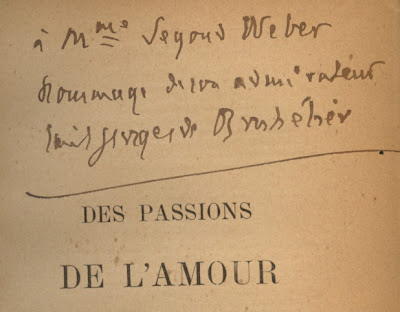 à Mme Segond Weber
hommage de son admirateur
Saint Georges de Bouhélier
DES PASSIONS
DE L'AMOUR